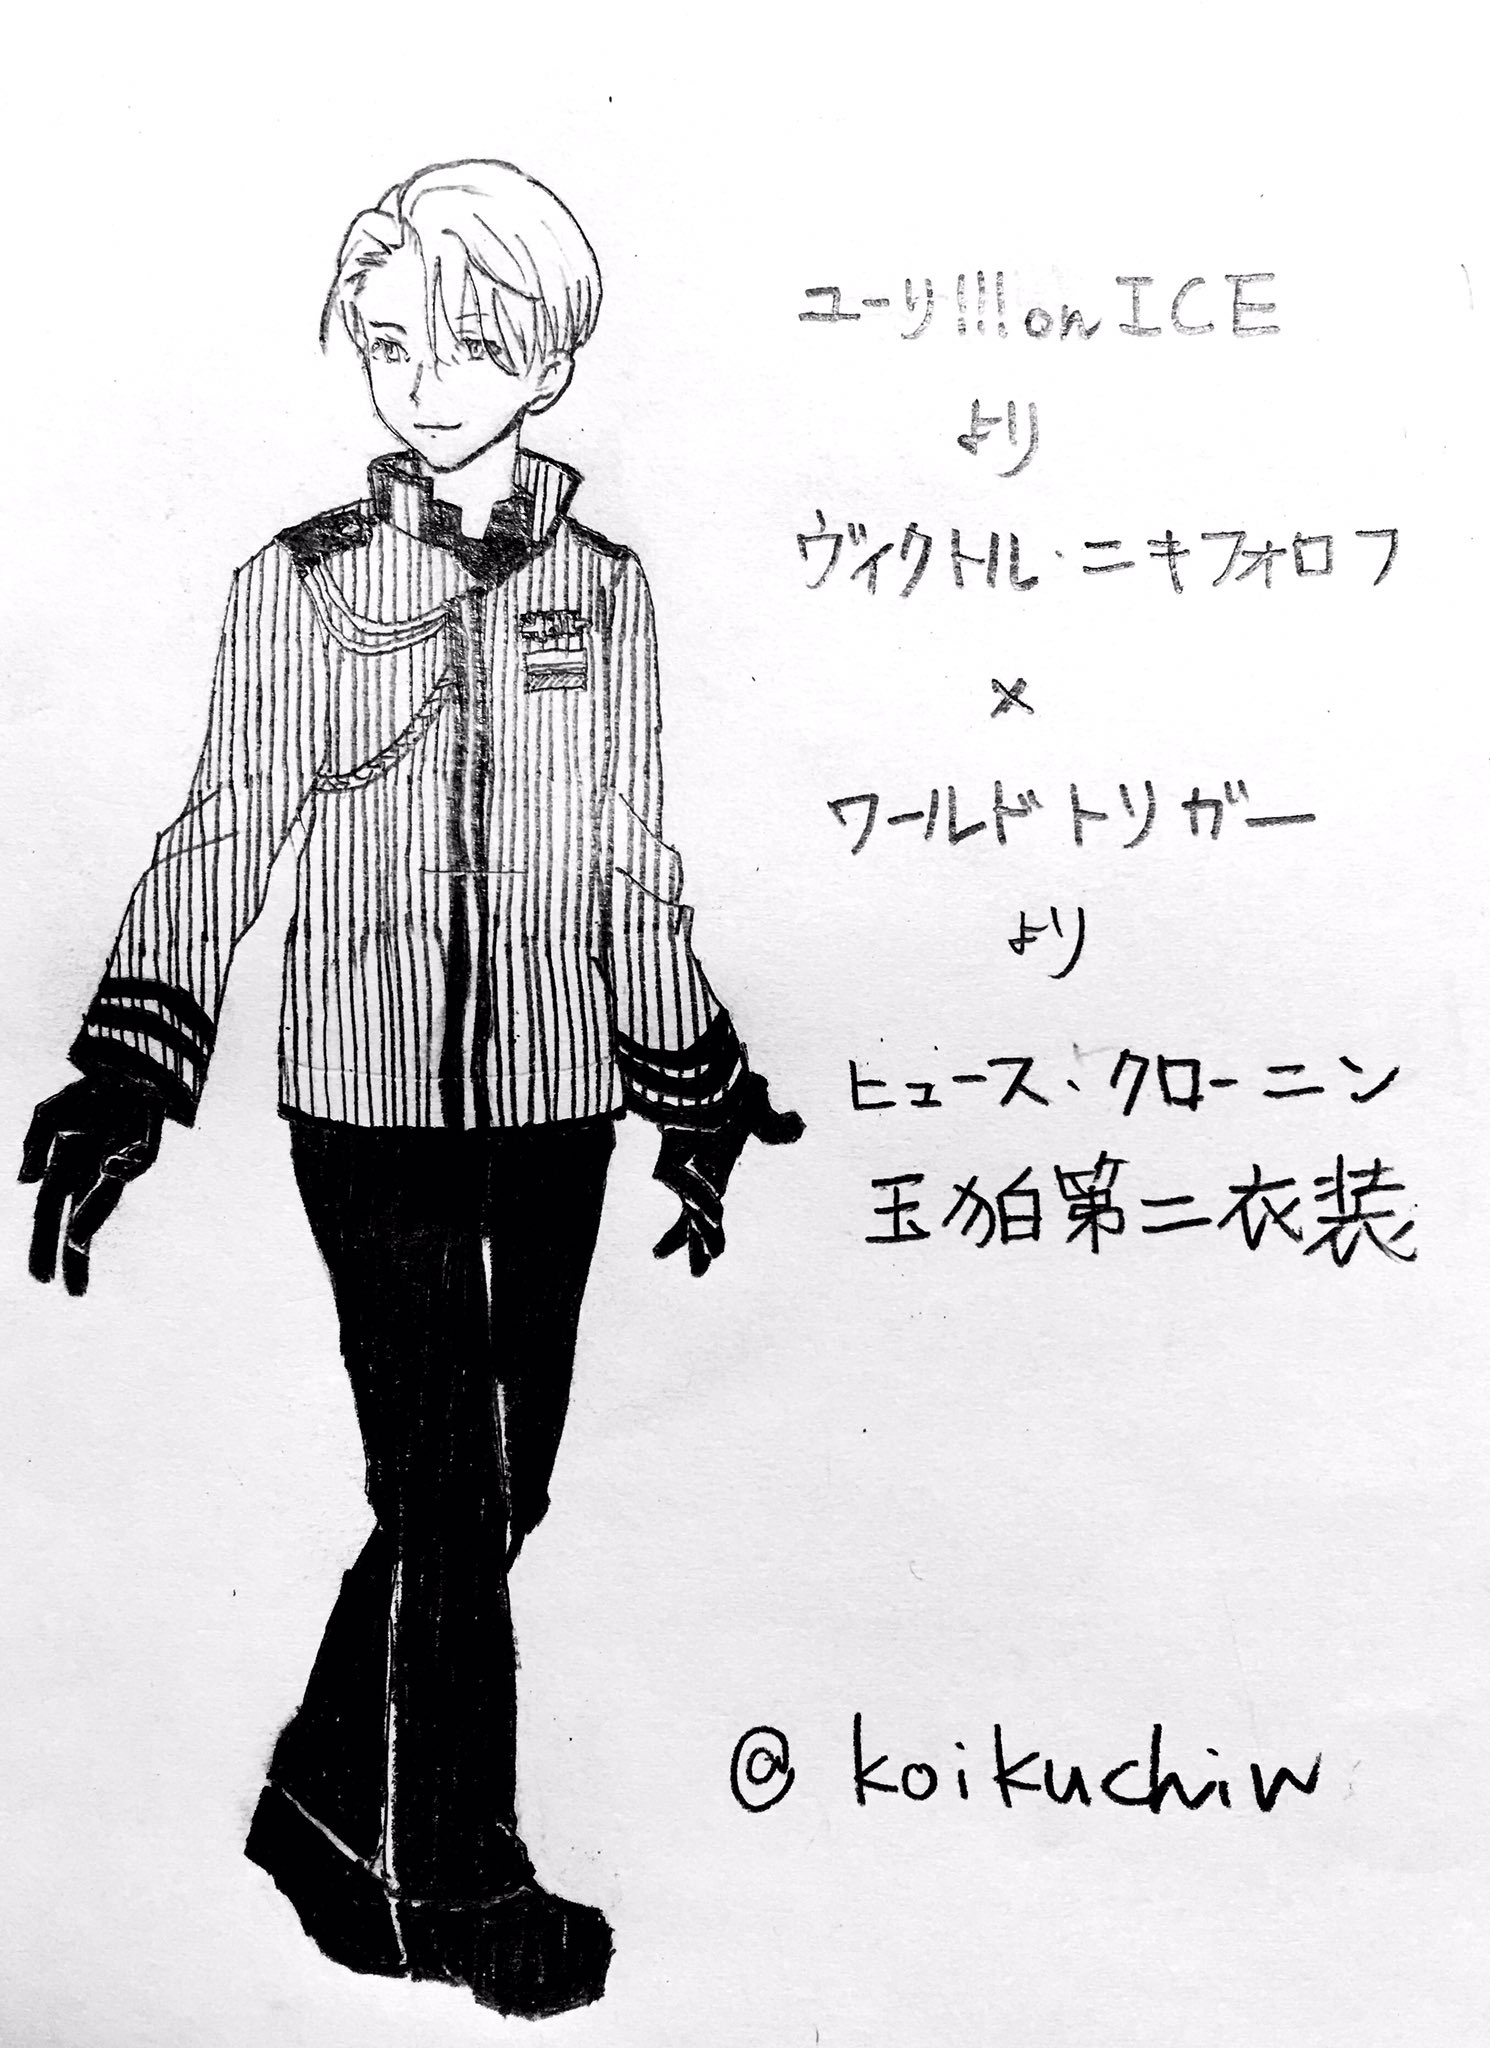 ユーリ!!! on ICE
より
ヴィクトル・ニキフォロフ
×
ワールドトリガー
より
ヒュース・クローニン
玉狛第二衣装
@koikuchiw